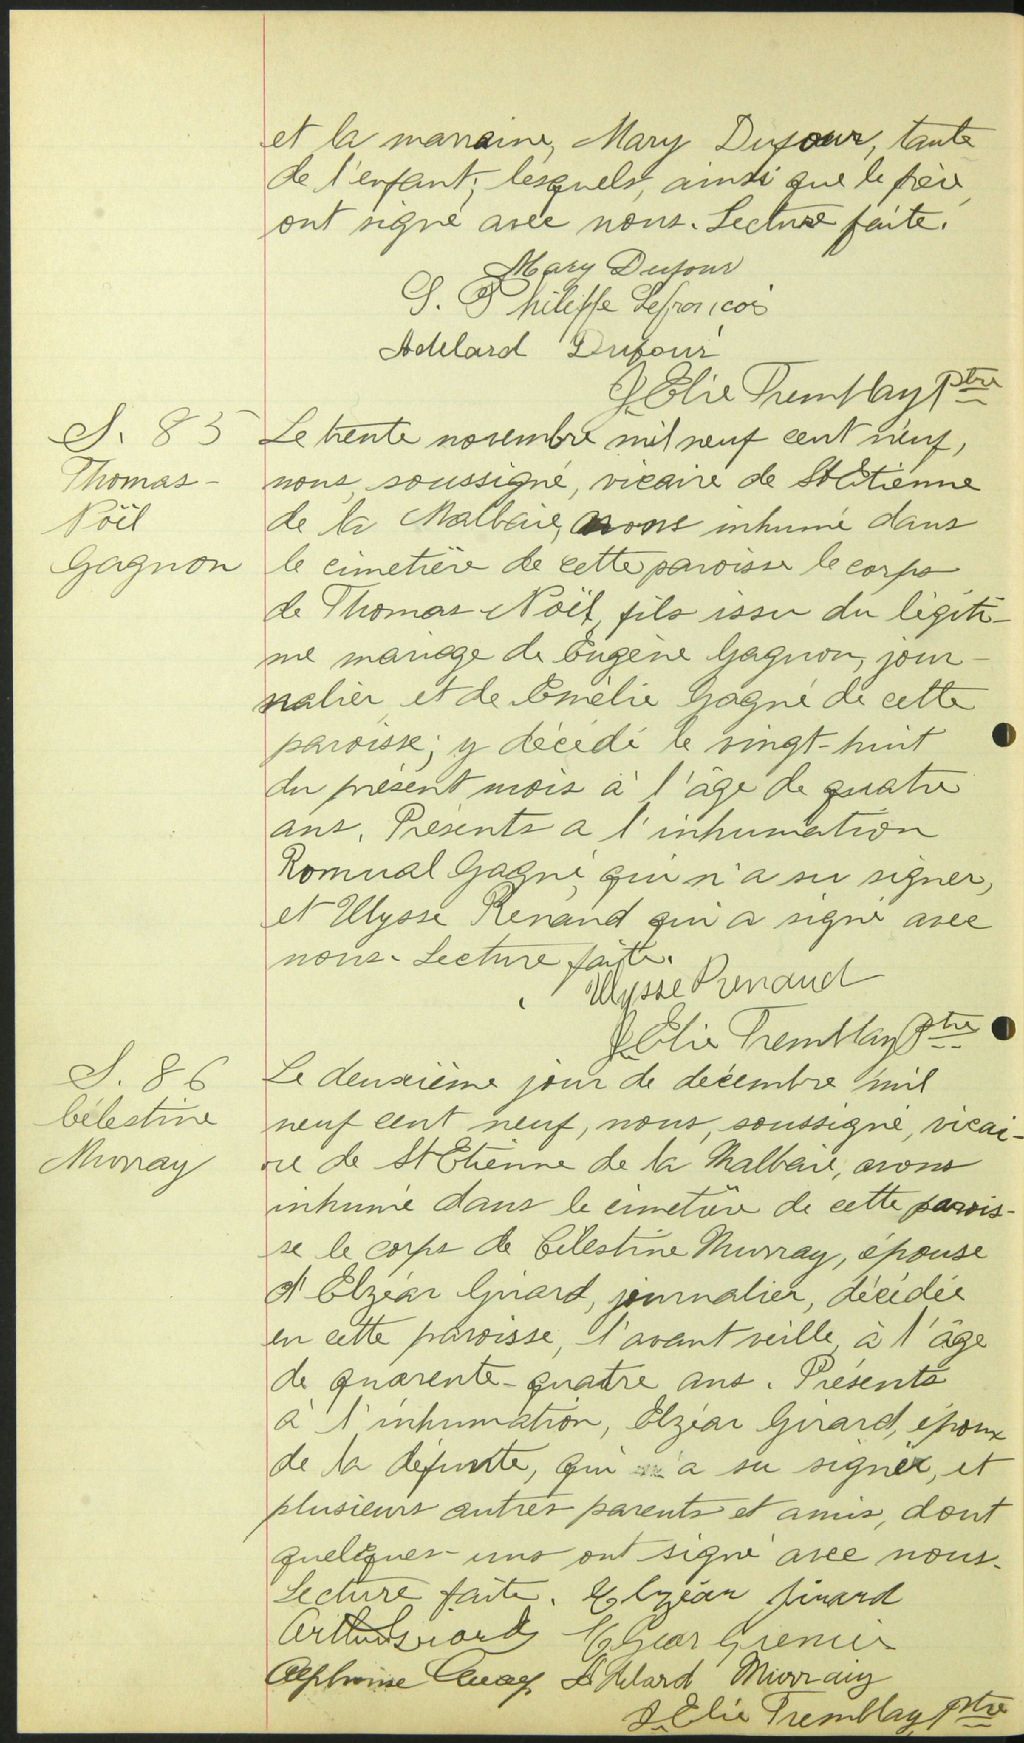 et la marraine, Mary Dufour, tante
de l'enfant; lesquels, ainsi que le père,
ont signé avec nous. Lecture faite.
Mary Dufour
S. Philippe Lefrançois
Adélard Dufour
J. Elie Tremblay Ptre
S. 85
Thomas-
Noël
Gagnon
Le trente novembre mil neuf cent neuf,
nous, soussigné, vicaire de St Etienne
de la Malbaie, avons inhumé dans
le cimetière de cette paroisse le corps
de Thomas-Noël, fils issu du légiti-
me mariage de Eugène Gagnon, jour-
nalier, et de Emélie Gagné de cette
paroisse; y décédé le vingt-huit
du présent mois à l'âge de quatre
ans. Présents a l'inhumation
Romual Gagné, qui n'a su signer,
et Ulysse Renaud qui a signé avec
nous. Lecture faite.
Ulysse Renaud
J. Elie Tremblay Ptre
S. 86
Célestine
Murray
Le deuxième jour de décembre mil
neuf cent neuf, nous, soussigné, vicai-
re de St Etienne de la Malbaie, avons
inhumé dans le cimetière de cette parois-
se le corps de Célestine Murray, épouse
d'Elzéar Girard, journalier, décédée
en cette paroisse, l'avant veille, à l'âge
de quarente-quatre ans. Présents
à l'inhumation, Elzéar Girard, époux
de la défunte, qui a su signer, et
plusieurs autres parents et amis, dont
quelques-uns ont signé avec nous.
Lecture faite. Elzéar Girard
Arthur Girard Grenier
Alphonse Adélard Murray
J. Elie Tremblay, Ptre